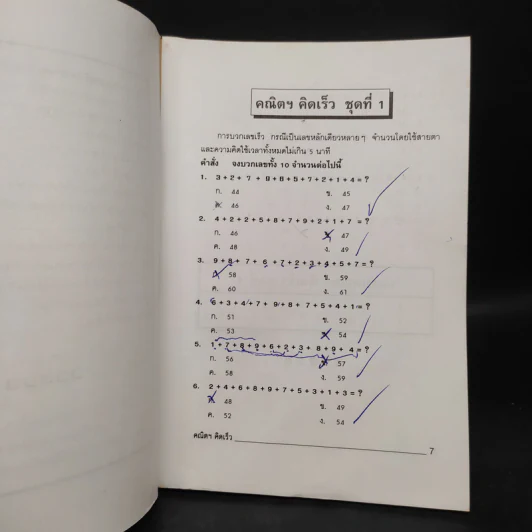 คณิตฯ คิดเร็ว ชุดที่ 1
การบวกเลขเร็ว กรณีเป็นเลขหลักเดียวหลายๆ จำนวนโดยใช้สายตา
และความคิดใช้เวลาทั้งหมดไม่เกิน 5 นาที
คำสั่ง จงบวกเลขทั้ง 10 จำนวนต่อไปนี้
1. 3+2+7+8+8+5+7+2+1+4=?
ก. 44 ข. 45
ค. 46 ง. 47
2. 4+2+2+5+8+7+9+2+1+7=?
ก. 46 ข. 47
ค. 48 ง. 49
3. 9+8+7+6+7+2+3+4+5+7=?
ก. 58 ข. 59
ค. 60 ง. 61
4. 6+3+4+7+9+8+7+5+4+1=?
ก. 51 ข. 52
ค. 53 ง. 54
5. 1+7+8+9+6+2+3+8+9+4=?
ก. 56 ข. 57
ค. 58 ง. 59
6. 2+4+6+8+9+7+5+3+1+3=?
ก. 48 ข. 49
ค. 52 ง. 54
คณิตฯ คิดเร็ว 7